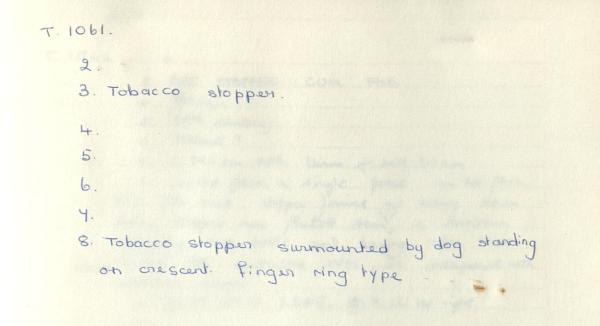 T. 1061.
2.
3. Tobacco stopper.
4.
5.
6.
7.
8. Tobacco stopper surmounted by dog standing
on crescent. Finger ring type